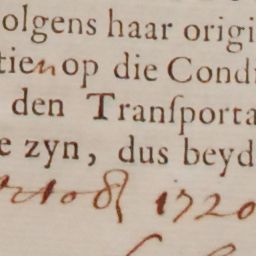 olgens haar origi
tien op die Cond
den Tranſporta
e zyn, dus beyd
1720